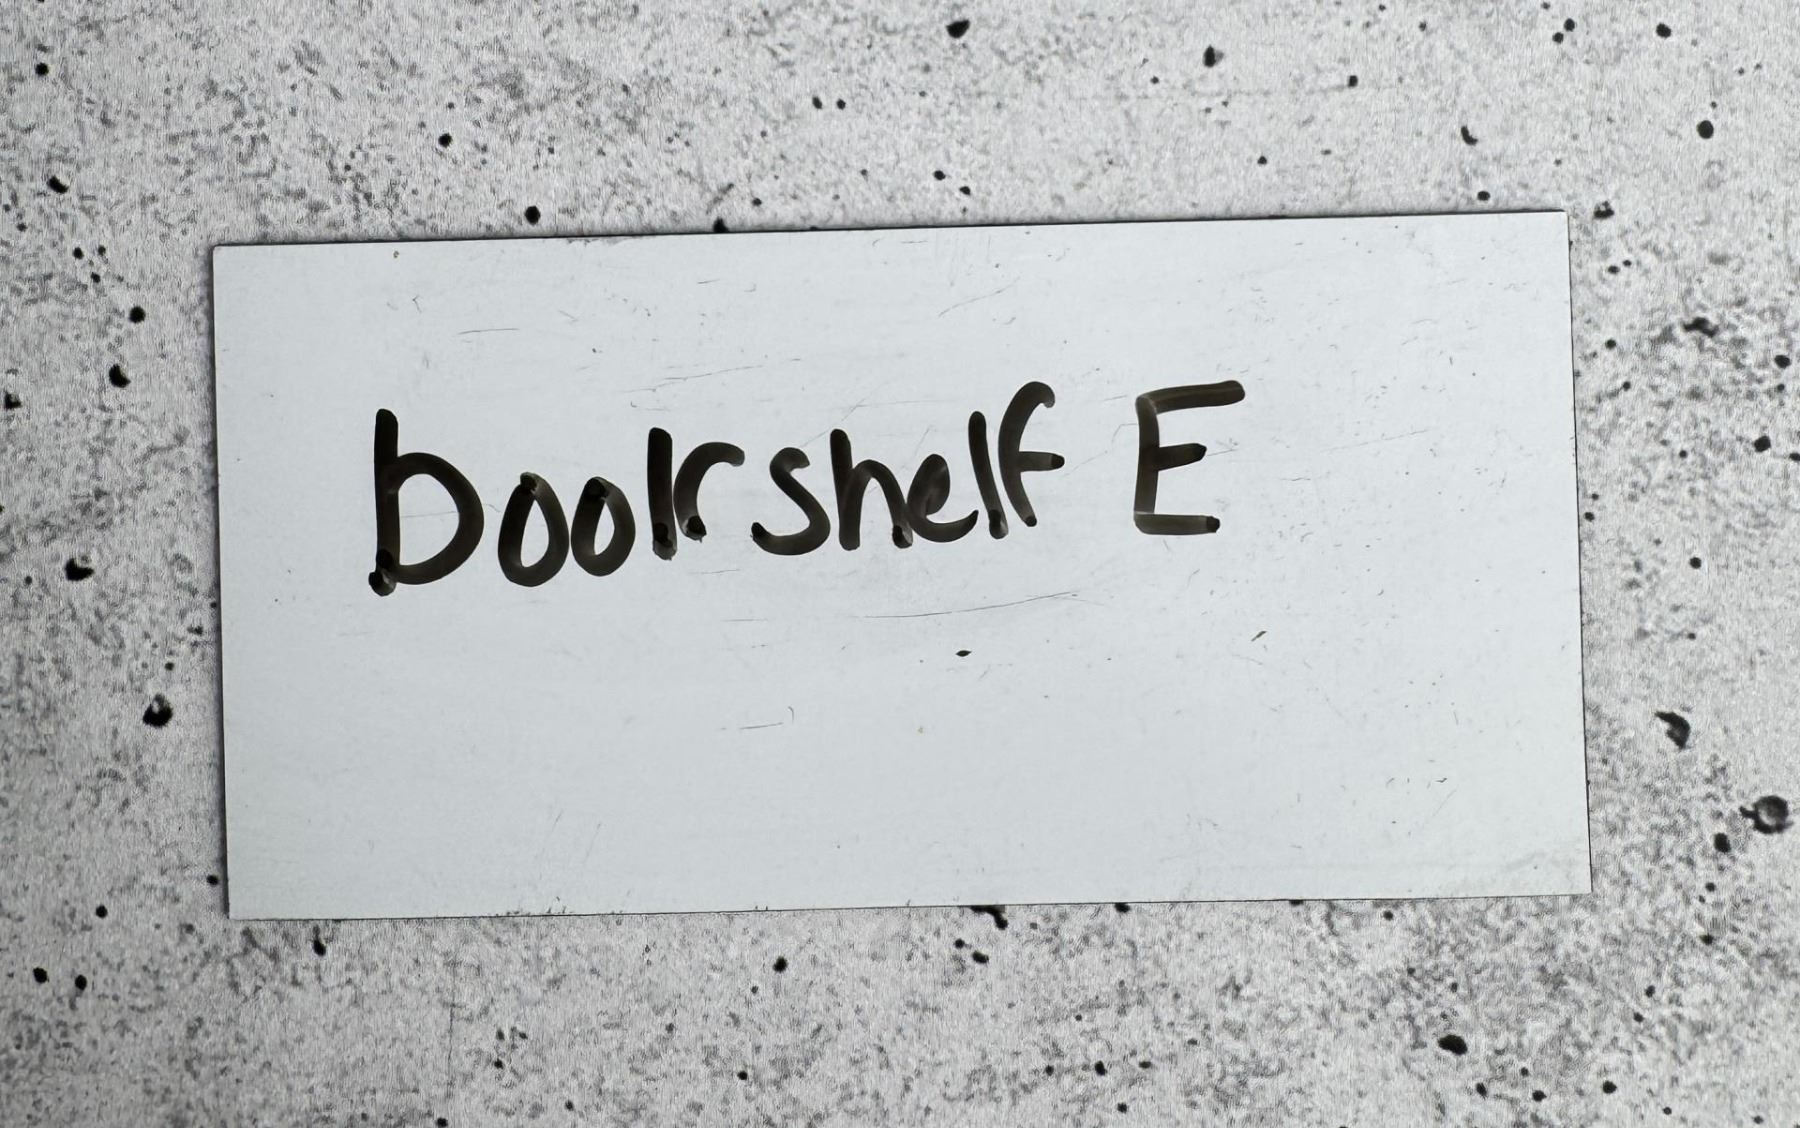 bookshelf E